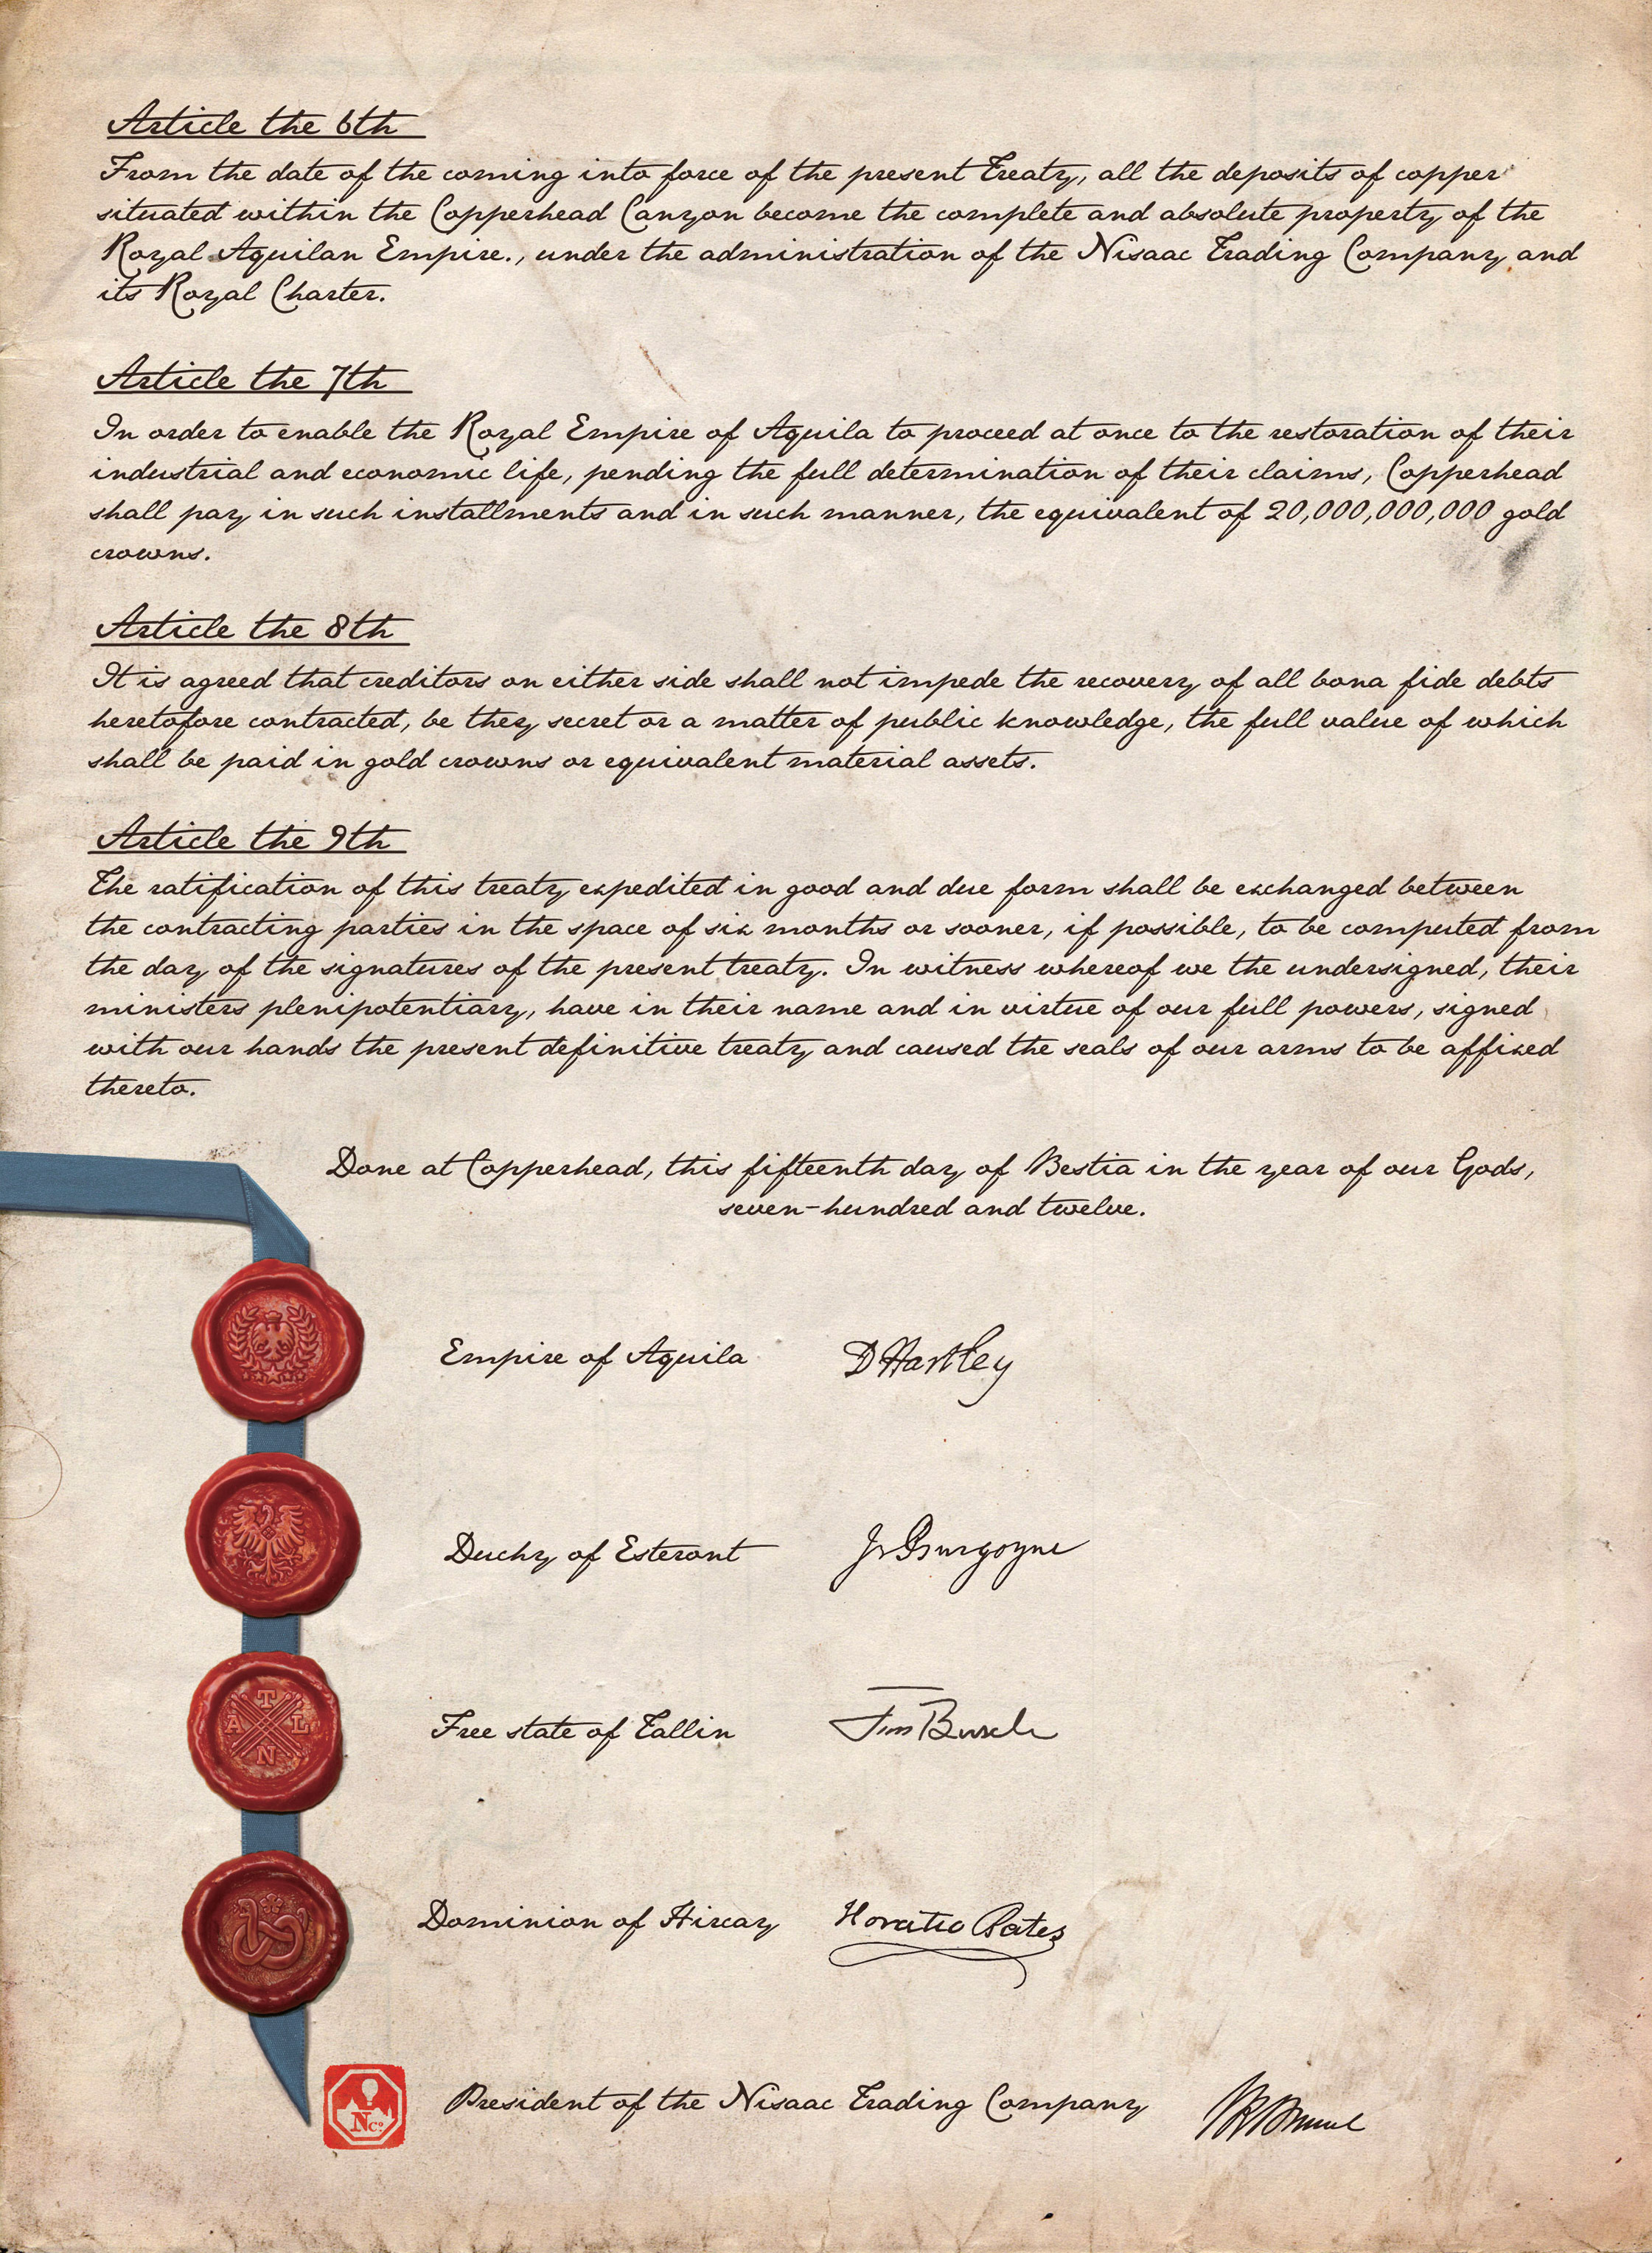 Article the 6th
From the date of the coming into force of the present Treaty, all the deposits of copper
situated within the Copperhead Canyon become the complete and absolute property of the
Royal Aquilan Empire., under the administration of the Nisaac Trading Company and
its Royal Charter.
Article the 7th
In order to enable the Royal Empire of Aquila to proceed at once to the restoration of their
industrial and economic life, pending the full determination of their claims, Copperhead
shall pay in such installments and in such manner, the equivalent of 20,000,000,000 gold
crowns.
Article the 8th
It is agreed that creditors on either side shall not impede the recovery of all bona fide debts
heretofore contracted, be they secret or a matter of public knowledge, the full value of which
shall be paid in gold crowns or equivalent material assets.
Article the 9th
The ratification of this treaty expedited in good and due form shall be exchanged between
the contracting parties in the space of six months or sooner, if possible, to be computed from
the day of the signatures of the present treaty. In witness whereof we the undersigned, their
ministers plenipotentiary, have in their name and in virtue of our full powers, signed
with our hands the present definitive treaty and caused the seals of our arms to be affixed
thereto.
Done at Copperhead, this fifteenth day of Bestia in the year of our Gods,
seven-hundred and twelve.
Empire of Aquila D Hartley
Duchy of Esteront Burgoyne
T
A L
N
Free state of Tallin
Dominion of Hircay Horatio Gates
N Co
President of the Nisaac Trading Company